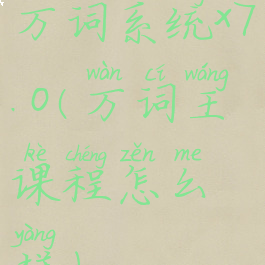 万词系统x7
.0(万词王
wàn cí wáng
课程怎么
kè chéng zěn me
yàng